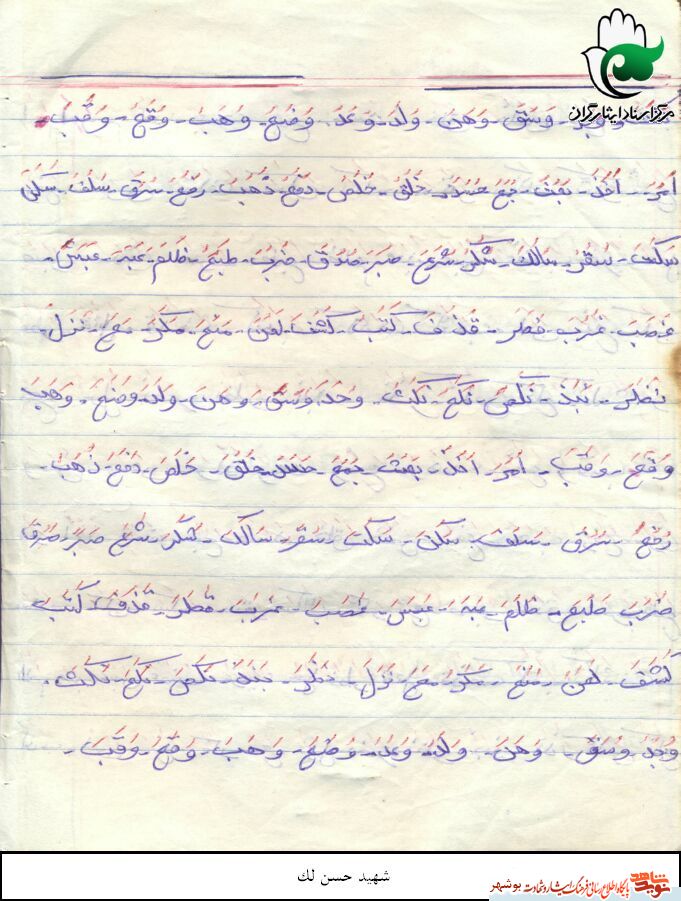 مرکز اسناد ایثارگران
وَسَقَ - وَهَنَ - وَلَدَ - وَعَدَ - وَضَعَ - وَهَبَ - وَقَعَ - وَقَبَ -
اَمَرَ - اَخَذَ - بَعَثَ - جَمَعَ - حَسَدَ - خَلَقَ - خَلَصَ - دَفَعَ - ذَهَبَ - رَفَعَ - سَرَقَ - سَلَفَ - سَکَنَ
سَکَتَ - سَقَرَ - سالَکَ - شَکَرَ - شَرَعَ - صَبَرَ - صَدَقَ - ضَرَبَ - طَبَعَ - ظَلَمَ - عَبَدَ - عَبَسَ -
غَصَبَ - غَرَبَ - فَطَرَ - قَذَفَ - کَتَبَ - کَشَفَ - لَعَنَ - مَنَعَ - مَکَرَ - مَعَ - نَزَلَ -
نَظَرَ - نَبَذَ - نَکَصَ - نَکَحَ - نَکَثَ - وَجَدَ - وَسَقَ - وَهَنَ - وَلَدَ - وَضَعَ - وَهَبَ
وَقَعَ - وَقَبَ - اَمَرَ - اَخَذَ - بَعَثَ - جَمَعَ - حَسَدَ - خَلَقَ - خَلَصَ - دَفَعَ - ذَهَبَ -
رَفَعَ - سَرَقَ - سَلَفَ - سَکَنَ - سَکَتَ - سَقَرَ - سالَکَ - شَکَرَ - شَرَعَ - صَبَرَ - صَدَقَ
ضَرَبَ - طَبَعَ - ظَلَمَ - عَبَدَ - عَبَسَ - غَصَبَ - غَرَبَ - فَطَرَ - قَذَفَ - کَتَبَ
کَشَفَ - لَعَنَ - مَنَعَ - مَکَرَ - مَعَ - نَزَلَ - نَظَرَ - نَبَذَ - نَکَصَ - نَکَحَ - نَکَثَ -
وَجَدَ - وَسَقَ - وَهَنَ - وَلَدَ - وَعَدَ - وَضَعَ - وَهَبَ - وَقَعَ - وَقَبَ -
شهید حسن لک
نوید شاهد پایگاه اطلاع رسانی فرهنگ ایثار و شهادت بوشهر